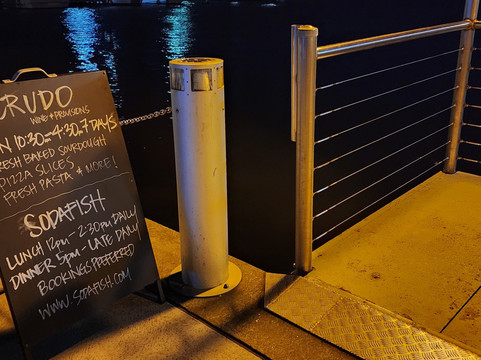 CRUDO
WINE + PROVISIONS
N 10:30-4:30 7 DAYS
RESH BAKED SOURDOUGH
PIZZA SLICES
FRESH PASTA & MORE!
SODAFISH
LUNCH 12PM - 2:30PM DAILY/
DINNER 5PM - LATE DAILY/
BOOKINGS PREFERRED
WWW.SODAFISH.COM